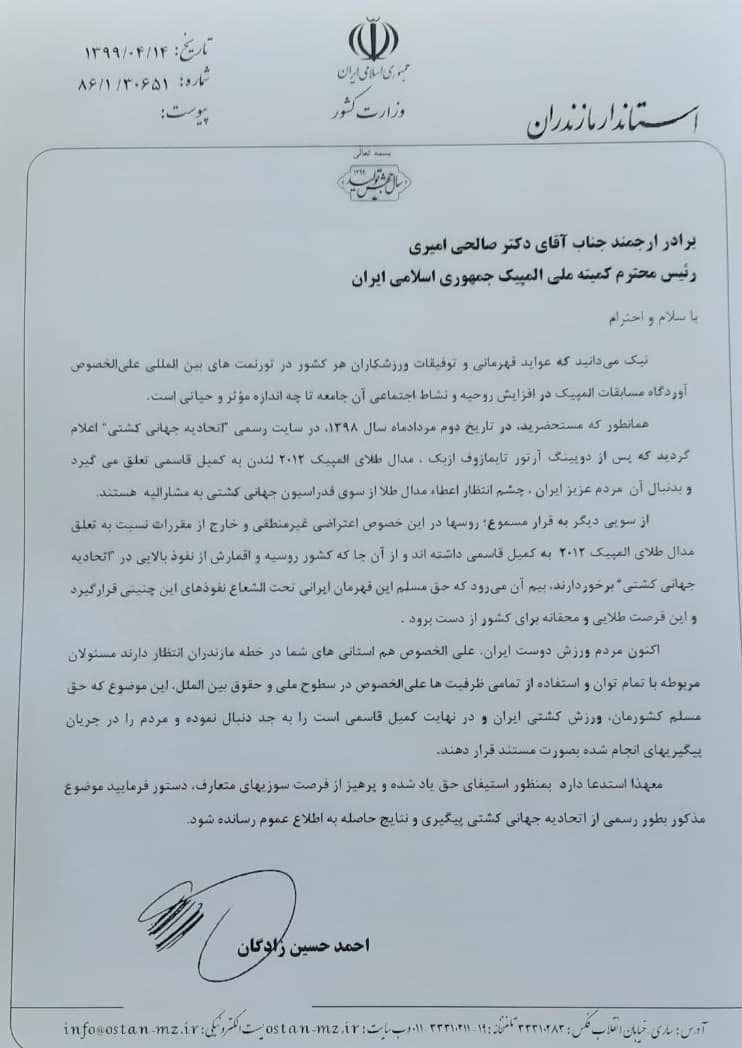 تاریخ: ۱۳۹۹/۰۴/۱۴
شماره: ۸۶/۱/۳۰۶۵۱
پیوست:
جمهوری اسلامی ایران
وزارت کشور
استاندار مازندران
بسمه تعالی
سال جهش تولید ۱۳۹۹
برادر ارجمند جناب آقای دکتر صالحی امیری
رئیس محترم کمیته ملی المپیک جمهوری اسلامی ایران
با سلام و احترام
نیک می‌دانید که عواید قهرمانی و توفیقات ورزشکاران هر کشور در تورنمت های بین المللی علی‌الخصوص
آوردگاه مسابقات المپیک در افزایش روحیه و نشاط اجتماعی آن جامعه تا چه اندازه مؤثر و حیاتی است.
همانطور که مستحضرید، در تاریخ دوم مردادماه سال ۱۳۹۸، در سایت رسمی "اتحادیه جهانی کشتی" اعلام
گردید که پس از دوپینگ آرتور تایمازوف ازبک ، مدال طلای المپیک ۲۰۱۲ لندن به کمیل قاسمی تعلق می گیرد
و بدنبال آن مردم عزیز ایران ، چشم انتظار اعطاء مدال طلا از سوی فدراسیون جهانی کشتی به مشارالیه هستند.
از سویی دیگر به قرار مسموع؛ روسها در این خصوص اعتراضی غیرمنطقی و خارج از مقررات نسبت به تعلق
مدال طلای المپیک ۲۰۱۲ به کمیل قاسمی داشته اند و از آن جا که کشور روسیه و اقمارش از نفوذ بالایی در "اتحادیه
جهانی کشتی" برخوردارند، بیم آن می‌رود که حق مسلم این قهرمان ایرانی تحت الشعاع نفوذهای این چنینی قرارگیرد
و این فرصت طلایی و محقانه برای کشور از دست برود .
اکنون مردم ورزش دوست ایران، علی الخصوص هم استانی های شما در خطه مازندران انتظار دارند مسئولان
مربوطه با تمام توان و استفاده از تمامی ظرفیت ها علی‌الخصوص در سطوح ملی و حقوق بین الملل، این موضوع که حق
مسلم کشورمان، ورزش کشتی ایران و در نهایت کمیل قاسمی است را به جد دنبال نموده و مردم را در جریان
پیگیریهای انجام شده بصورت مستند قرار دهند.
معهذا استدعا دارد بمنظور استیفای حق یاد شده و پرهیز از فرصت سوزیهای متعارف، دستور فرمایید موضوع
مذکور بطور رسمی از اتحادیه جهانی کشتی پیگیری و نتایج حاصله به اطلاع عموم رسانده شود.
احمد حسین زادگان
آدرس: ساری، خیابان انقلاب فکس: ۳۳۳۱۰۲۸۳ تلفنخانه: ۱۴-۳۳۳۱۰۲۱۱-۰۱۱ وب سایت: ostan-mz.ir پست الکترونیکی: info@ostan-mz.ir